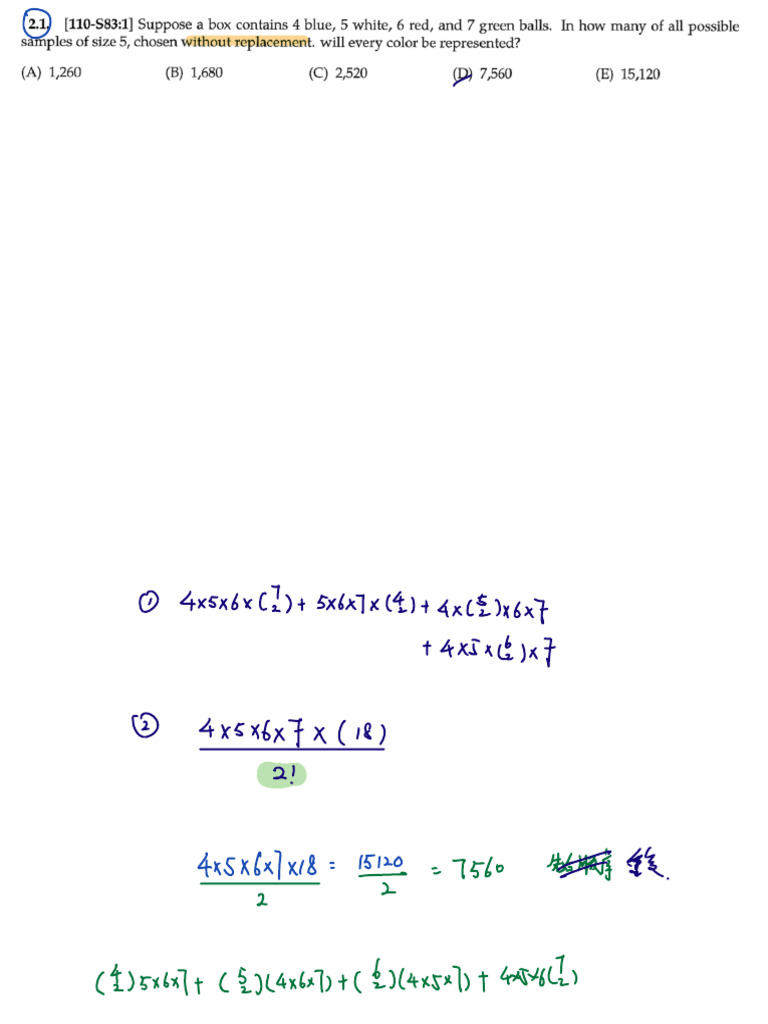 2.1. [110-S83:1] Suppose a box contains 4 blue, 5 white, 6 red, and 7 green balls. In how many of all possible
samples of size 5, chosen without replacement. will every color be represented?
(A) 1,260 (B) 1,680 (C) 2,520 (D) 7,560 (E) 15,120
① 4×5×6×(7 2)+ 5×6×7×(4 2)+ 4×(5 2)×6×7
+ 4×5×(6 2)×7
② 4×5×6×7×(18)
2!
4×5×6×7×18 = 15120 = 7560
2 2
(4 2)5×6×7+ (5 2)(4×6×7)+(6 2)(4×5×7)+ 4×5×6(7 2)